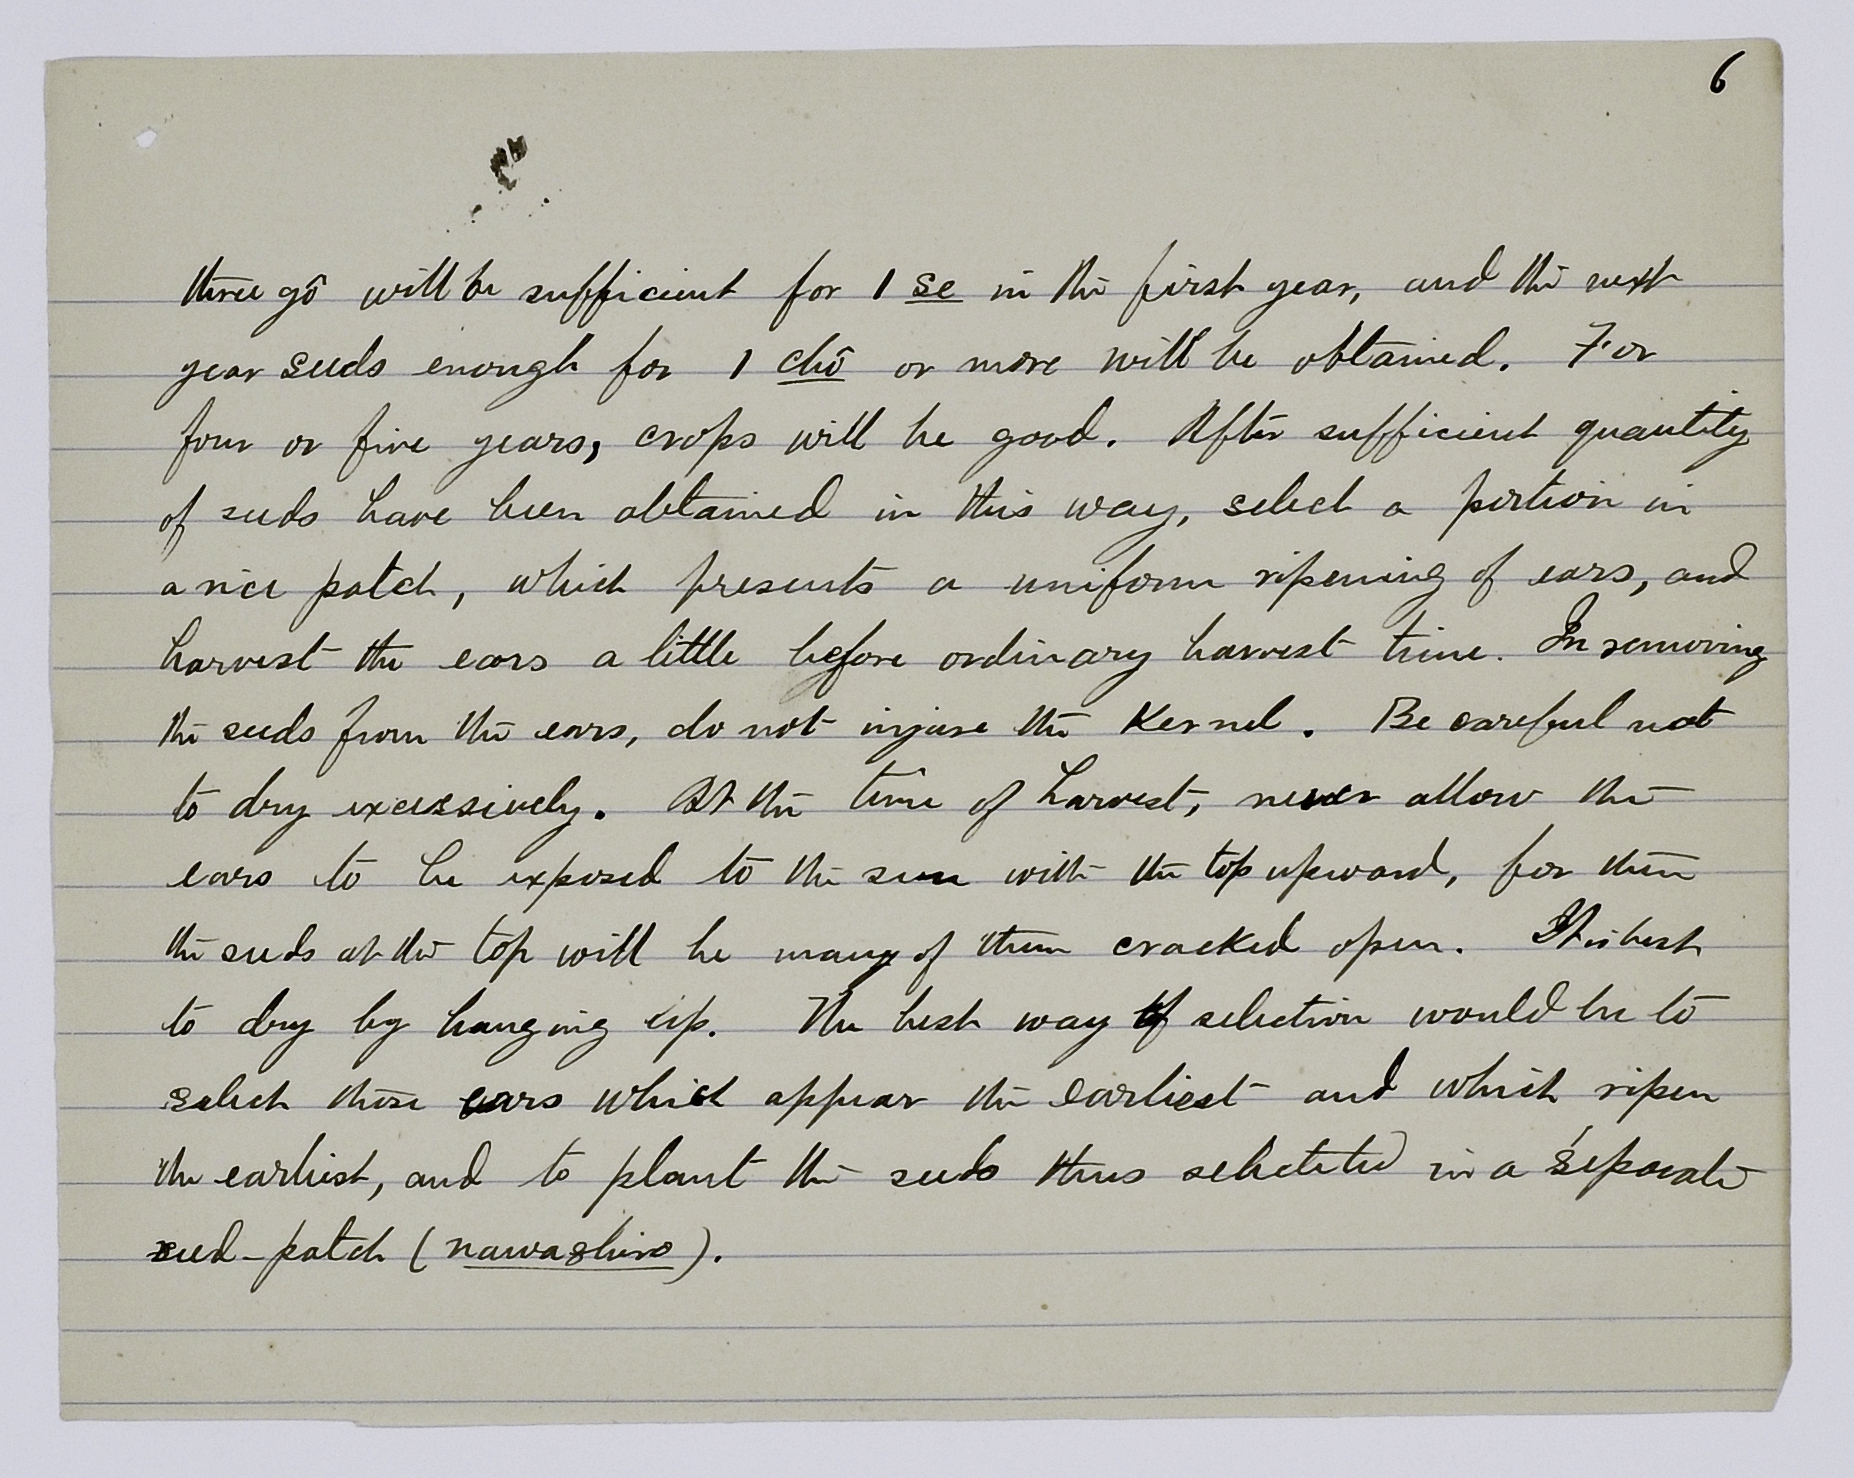 6
three gô will be sufficient for 1 se in the first year, and the next
year seeds enough for 1 chô or more will be obtained. For
four or five years, crops will be good. After sufficient quantity
of seeds have been obtained in this way, select a portion in
a rice patch, which presents a uniform ripening of ears, and
harvest the ears a little before ordinary harvest time. In removing
the seeds from the ears, do not injure the Kernel. Be careful not
to dry excessively. At the time of harvest, never allow the
ears to be exposed to the sun with the top upward, for then
the seeds at the top will be many of them cracked open. It is best
to dry by hanging up. The best way of selection would be to
select those ears which appear the earliest and which ripen
the earliest, and to plant the seeds thus selected in a separate
seed-patch (nawashiro).